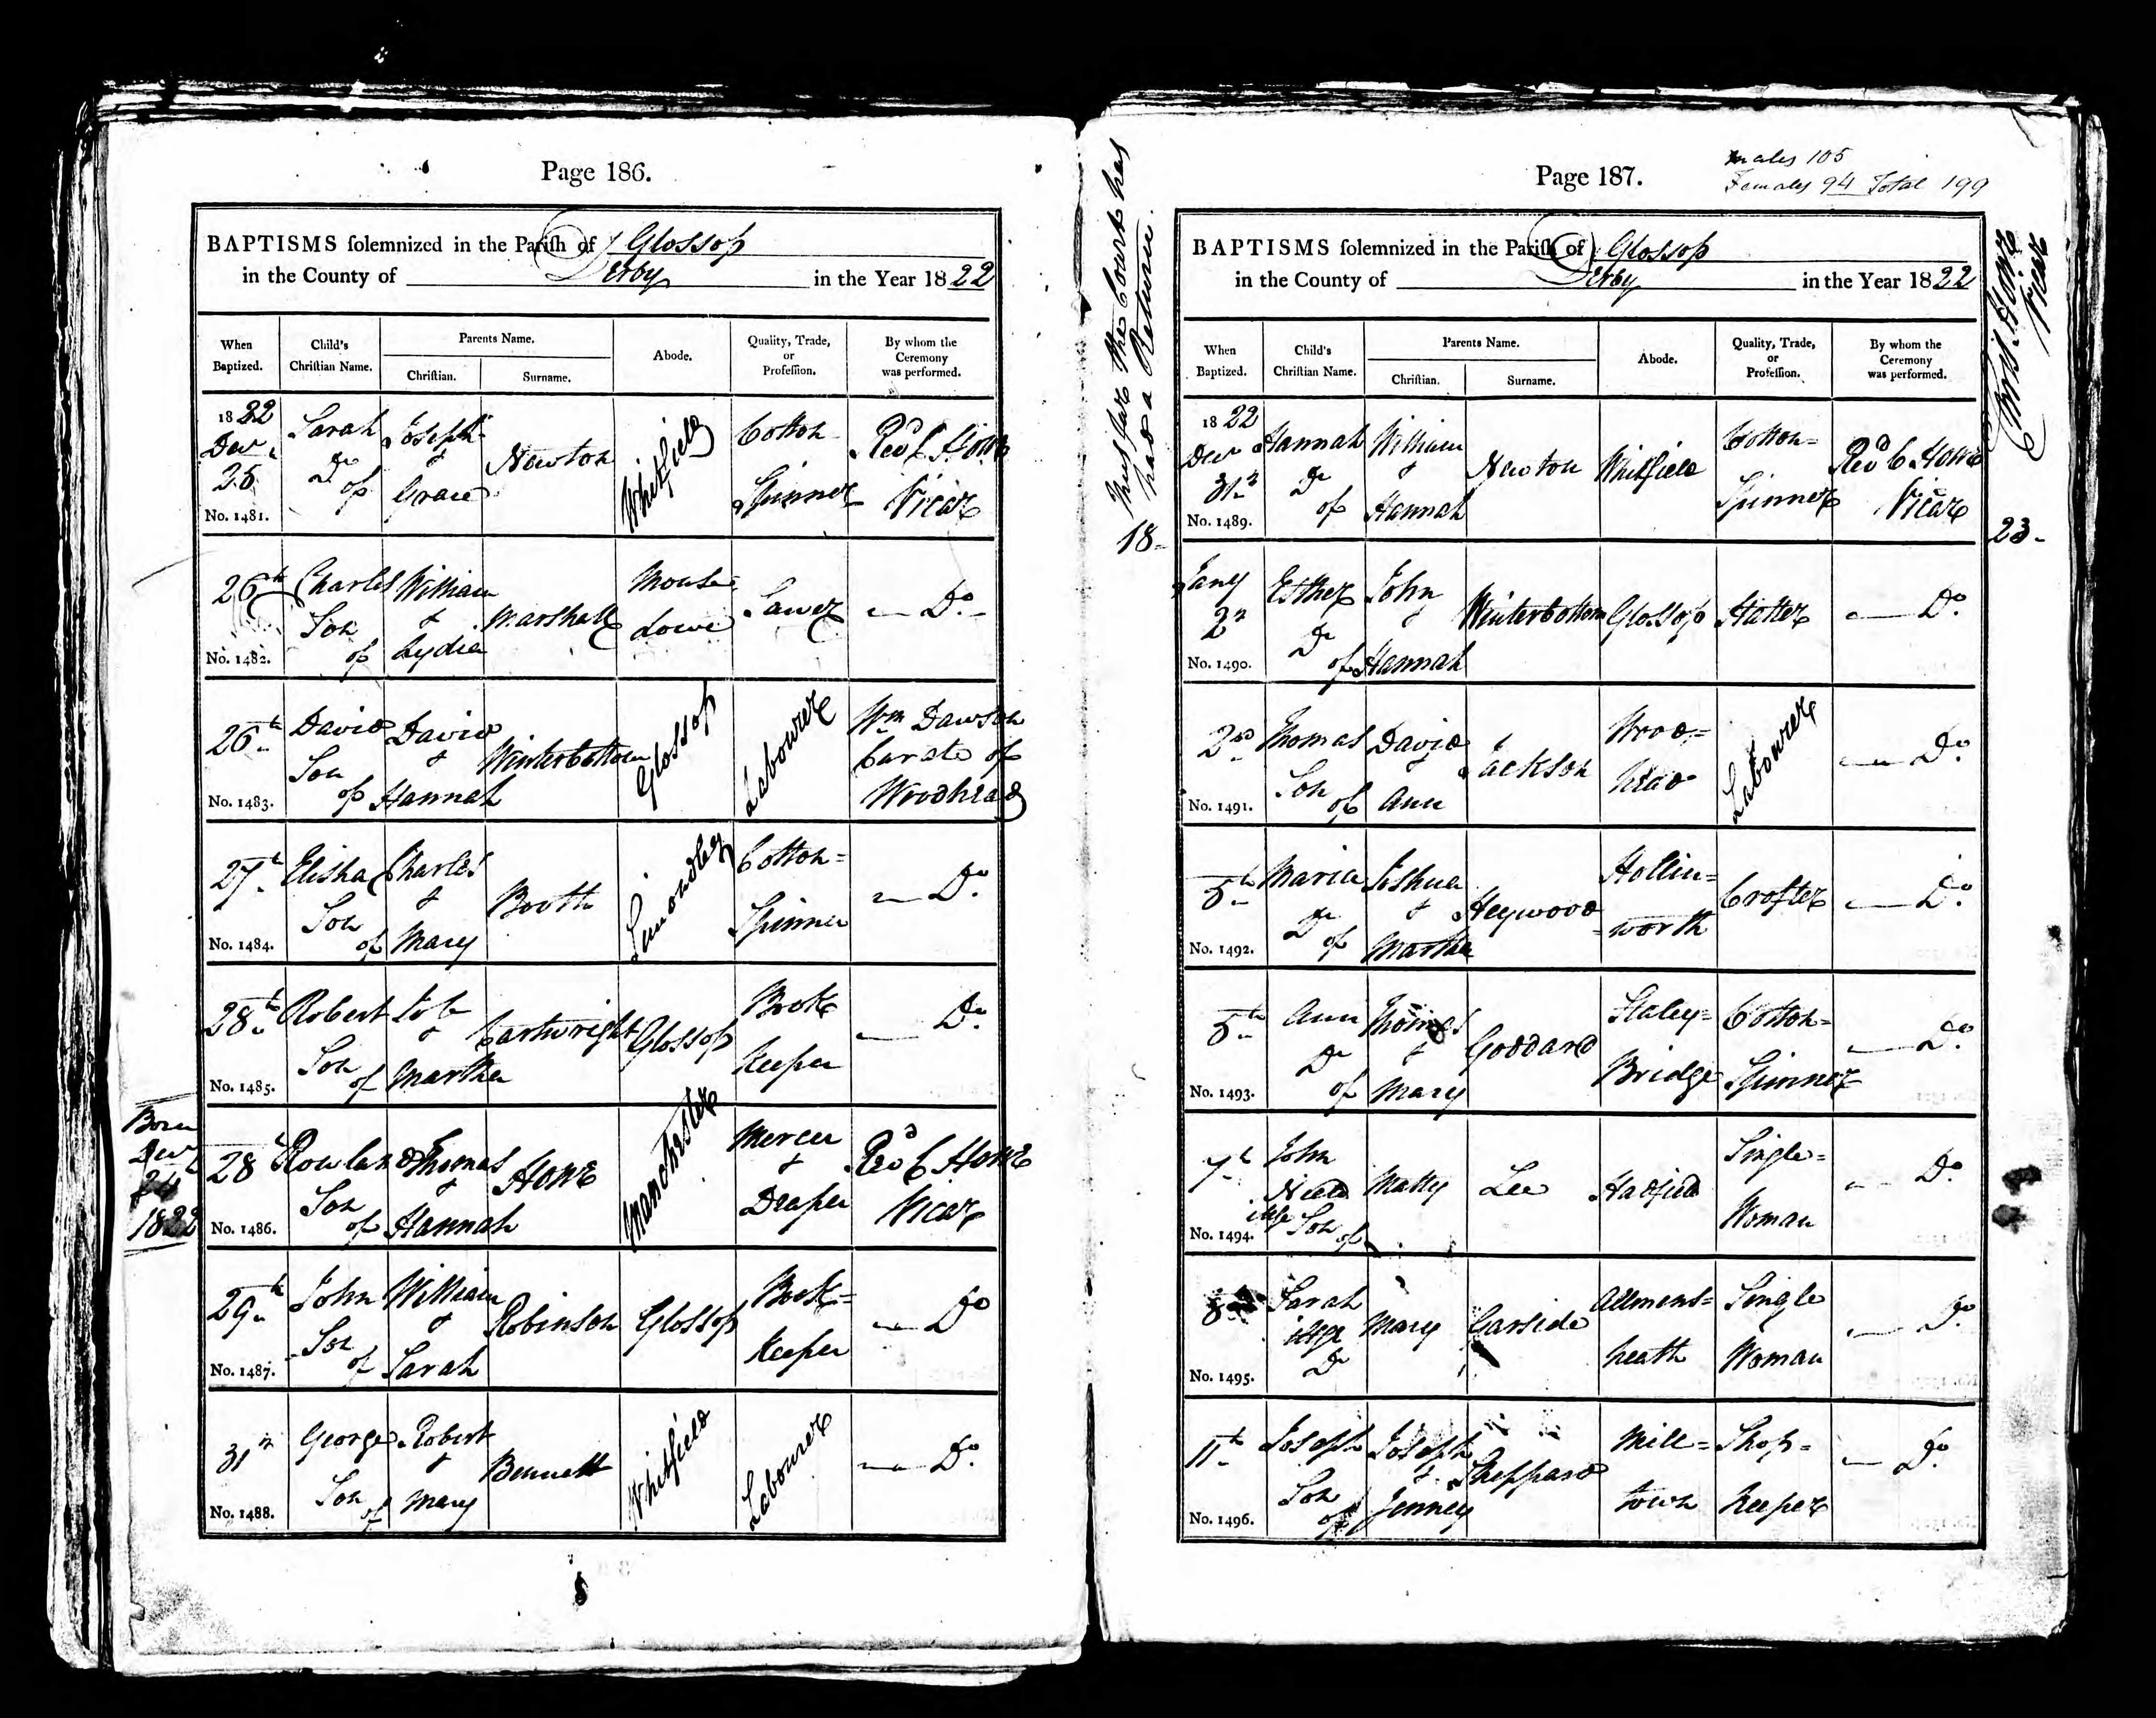 Page 186.
BAPTISMS solemnized in the Parish of Glossop
in the County of Derby in the Year 1822
When Baptized.
Child's Christian Name.
Parents Name.
Christian.
Surname.
Abode.
Quality, Trade, or Profession.
By whom the Ceremony was performed.
1822 Decr 25 No. 1481.
Sarah Dr of
Joseph & Grace
Newton
Whitfield
Cotton Spinner
Revd C. Howe Vicar
26th No. 1482.
Charles Son of
William & Lydia
Marshall
Mouse= Lowe
Sawer
— Do.
26th No. 1483.
David Son of
David & Hannah
Winterbottom
Glossop
Labourer
Wm Dawson Curate of Woodhead
27th No. 1484.
Elisha Son of
Charles & Mary
Booth
Simondley
Cotton= Spinner
— Do.
28th No. 1485.
Robert Son of
Job & Martha
Cartwright
Glossop
Book keeper
— Do.
Born Decr 24 1822
28 No. 1486.
Rowland Son of
Thomas & Hannah
Howe
Manchester
Mercer & Draper
Revd C. Howe Vicar
29th No. 1487.
John Son of
William & Sarah
Robinson
Glossop
Book= keeper
— Do
31st No. 1488.
George Son of
Robert & Mary
Bennett
Whitfield
Labourer
— Do.
Page 187.
Males 105
Females 94 Total 199
Thus far the Court has
had a Return.
Chrisr. Howe
Vicar
BAPTISMS solemnized in the Parish of Glossop
in the County of Derby in the Year 1822
When Baptized.
Child's Christian Name.
Parents Name.
Christian.
Surname.
Abode.
Quality, Trade, or Profession.
By whom the Ceremony was performed.
1822 Decr 31st No. 1489.
Hannah Dr of
William & Hannah
Newton
Whitfield
Cotton= Spinner
Revd C. Howe Vicar
18- 23-
Jany 2d No. 1490.
Esther Dr of
John & Hannah
Winterbottom
Glossop
Hatter
— Do
2nd No. 1491.
Thomas Son of
David & Ann
Jackson
Wood= head
Labourer
— Do.
5th No. 1492.
Maria Dr of
Joshua & Martha
Heywood
Hollin= =worth
Crofter
— Do.
5th No. 1493.
Ann Dr of
Thomas & Mary
Goddard
Staley= Bridge
Cotton= Spinner
— Do.
7th No. 1494.
John Neild illge Son of
Matty
Lee
Hadfield
Single= Woman
— Do.
8 No. 1495.
Sarah illge Dr
Mary
Garside
Allmans= heath
Single Woman
— Do.
11th No. 1496.
Joseph Son of
Joseph & Jenney
Sheppard
Mill= town
Shop= keeper
— Do.